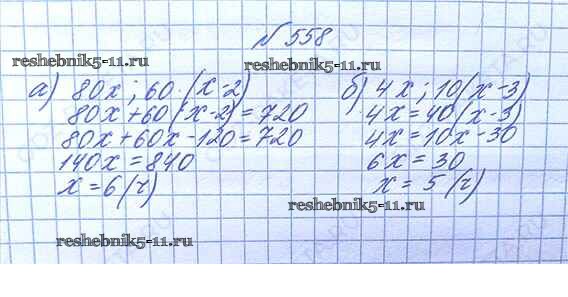 №558
reshebnik5-11.ru
reshebnik5-11.ru
а) 80х; 60·(х-2)
80х+60(х-2)=720
80х+60х-120=720
140х=840
х=6(ч)
б) 4х; 10(х-3)
4х=40(х-3)
4х=10х-30
6х=30
х=5(ч)
reshebnik5-11.ru
reshebnik5-11.ru